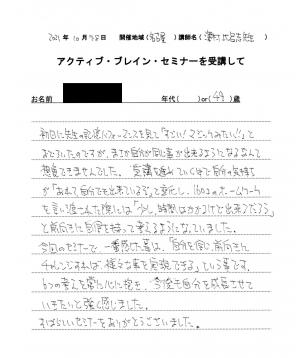 年10月 日 開催地域(名古屋)講師名( 先生)
アクティブ・ブレイン・セミナーを受講して
お名前 年代( )or( )歳
初日に先生の記憶パフォーマンスを見て「すごい!マジックみたい!!」と
おどろいたのですが、まさか自分が同じ事が出来るようになるなんて
想像できませんでした。受講を進めていく中で自分の気持ち
が「あれ?自分でも出来ている?」と変化し、160コのホームワーク
を言い渡された際には「少し時間はかかるけど出来るだろう」
と前向きに自信を持って考えるようになっていました。
今回のセミナーで、一番感じた事は、「自分を信じ、前向きに
チャレンジすれば、様々な事を実現できる」という事です。
6つの考えを常に心に抱き、今後も自分を成長させて
いきたいと強く感じました。
すばらしいセミナーをありがとうございました。